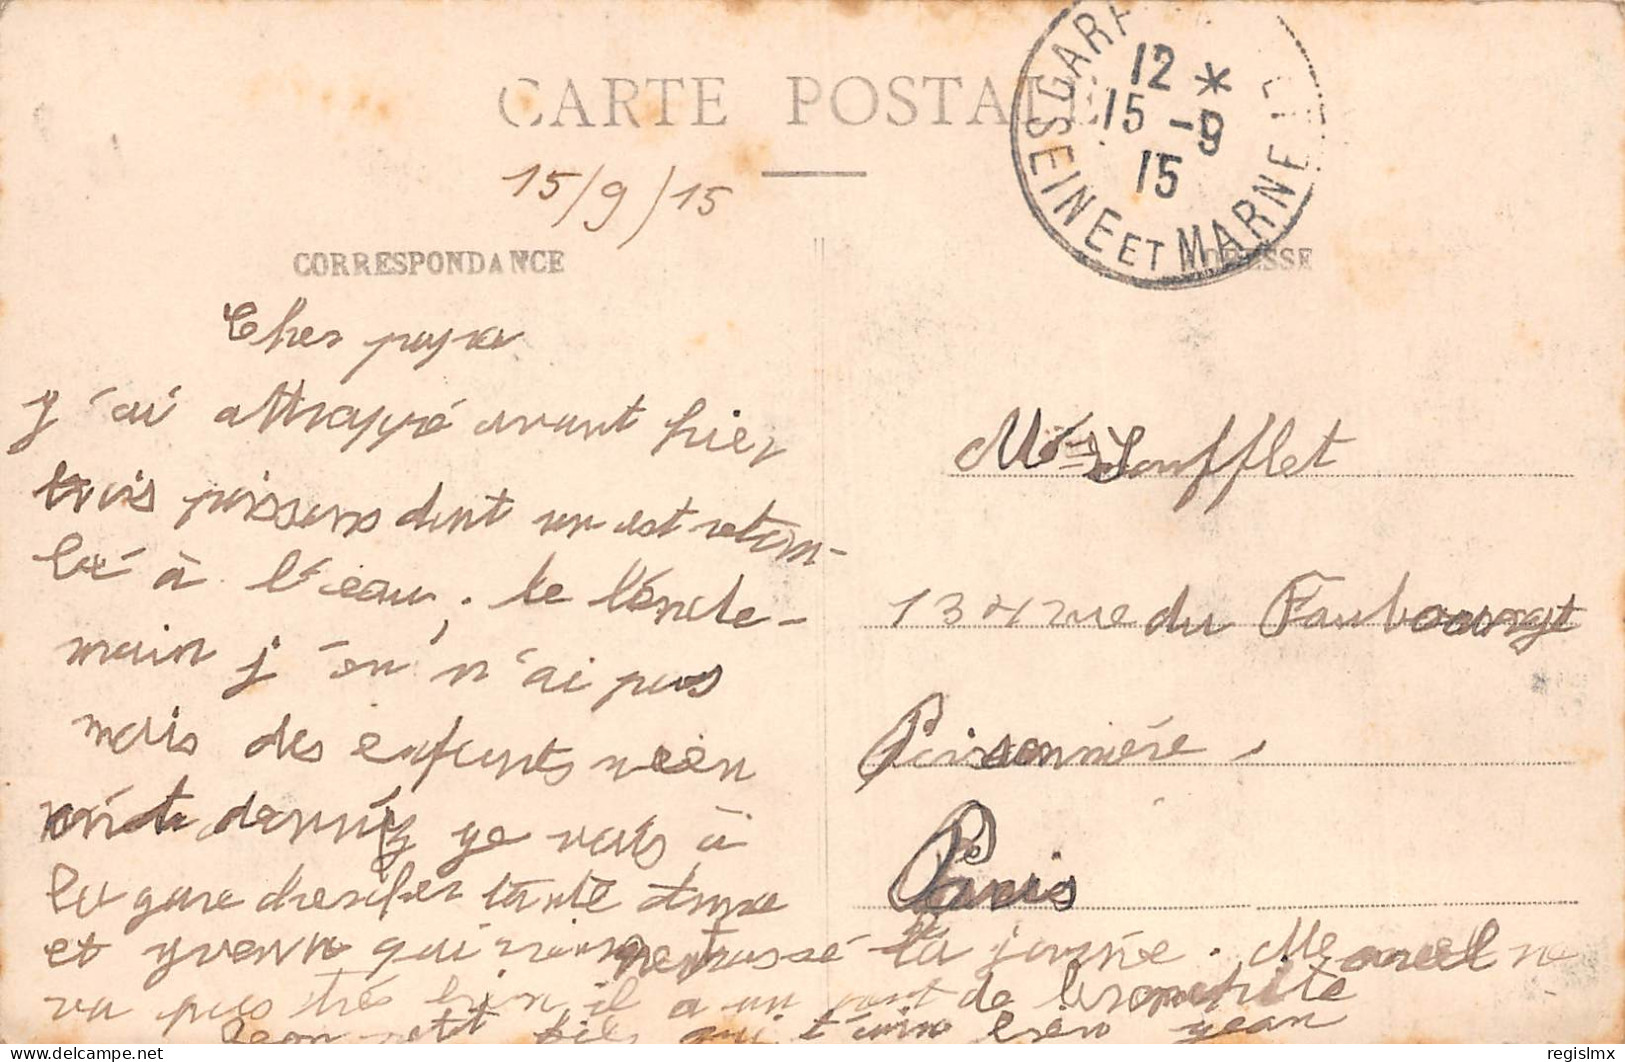 CARTE POSTALE
12 *
15 - 9
15
SEINE ET MARNE
15/9/15
CORRESPONDANCE
ADRESSE
Cher papa
j'ai attrappé avant hier
trois poissons dont un est retom-
bé à l'eau. le l'ende-
main j'en n'ai pas
mais des enfants m'en
ont donné je vais à
la gare chercher tante
et yvonn qui passé la journé. Marcel ne
va pas très bien il a un de bronchite
ton petit fils qui t'aime bien jean
Mr Soufflet
134 rue du Faubourgt
Poissonnière,
Paris
regislmx